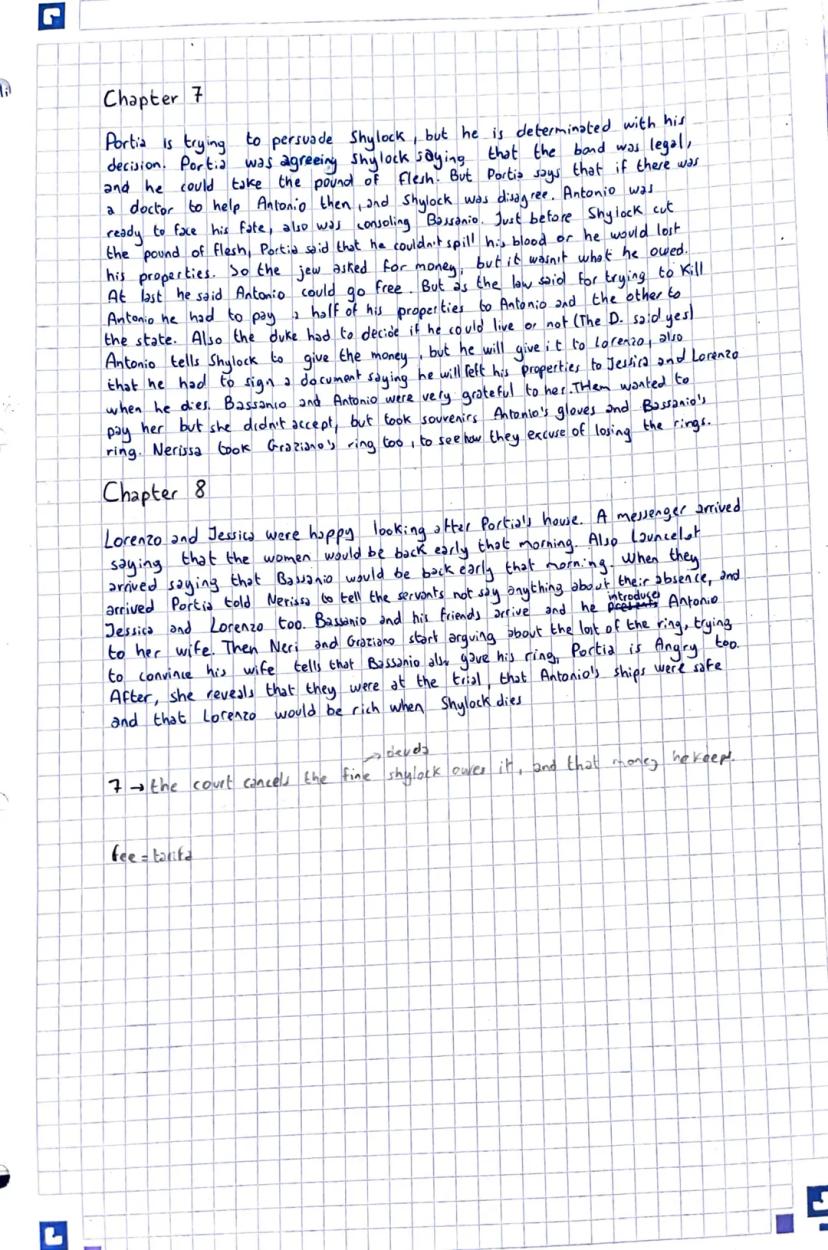 Chapter 7
Portia is trying to persuade Shylock, but he is determinated with his
decision. Portia was agreeing Shylock saying that the bond was legal,
and he could take the pound of flesh. But Portia says that if there was
a doctor to help Antonio then, and Shylock was disagree. Antonio was
ready to face his fate, also was consoling Bassanio. Just before Shylock cut
the pound of flesh, Portia said that he couldn't spill his blood or he would lost
his properties. So the jew asked for money, but it wasn't what he owed.
At last he said Antonio could go free. But as the law said for trying to Kill
Antonio he had to pay a half of his properties to Antonio and the other to
the state. Also the duke had to decide if he could live or not (The D. said yes)
Antonio tells Shylock to give the money, but he will give it to Lorenzo, also
that he had to sign a document saying he will left his properties to Jessica and Lorenzo
when he dies. Bassanio and Antonio were very grateful to her. THem wanted to
pay her but she didn't accept, but took souvenirs Antonio's gloves and Bassanio's
ring. Nerissa took Graziano's ring too, to see how they excuse of losing the rings.
Chapter 8
Lorenzo and Jessica were happy looking after Portia's house. A messenger arrived
saying that the women would be back early that morning. Also Launcelot
arrived saying that Bassanio would be back early that morning. When they
arrived Portia told Nerissa to tell the servants not say anything about their absence, and
Jessica and Lorenzo too. Bassanio and his friends arrive and he introduces Antonio
to her wife. Then Neri and Graziano start arguing about the lost of the ring, trying
to convince his wife tells that Bassanio also gave his ring, Portia is Angry too.
After, she reveals that they were at the trial, that Antonio's ships were safe
and that Lorenzo would be rich when Shylock dies
→ deuda
7 → the court cancels the fine shylock owes it, and that money he keep.
fee = tarifa